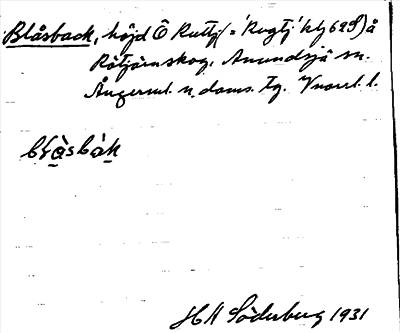 Blåsback, höjd Ö Ruttj (= 'Rogtj' klj 629) å
Rötjärnskog, Anundsjö sn.
Ångerml. n. doms. tg. Vnorrl. l.
blàsbàk
HM Söderberg 1931